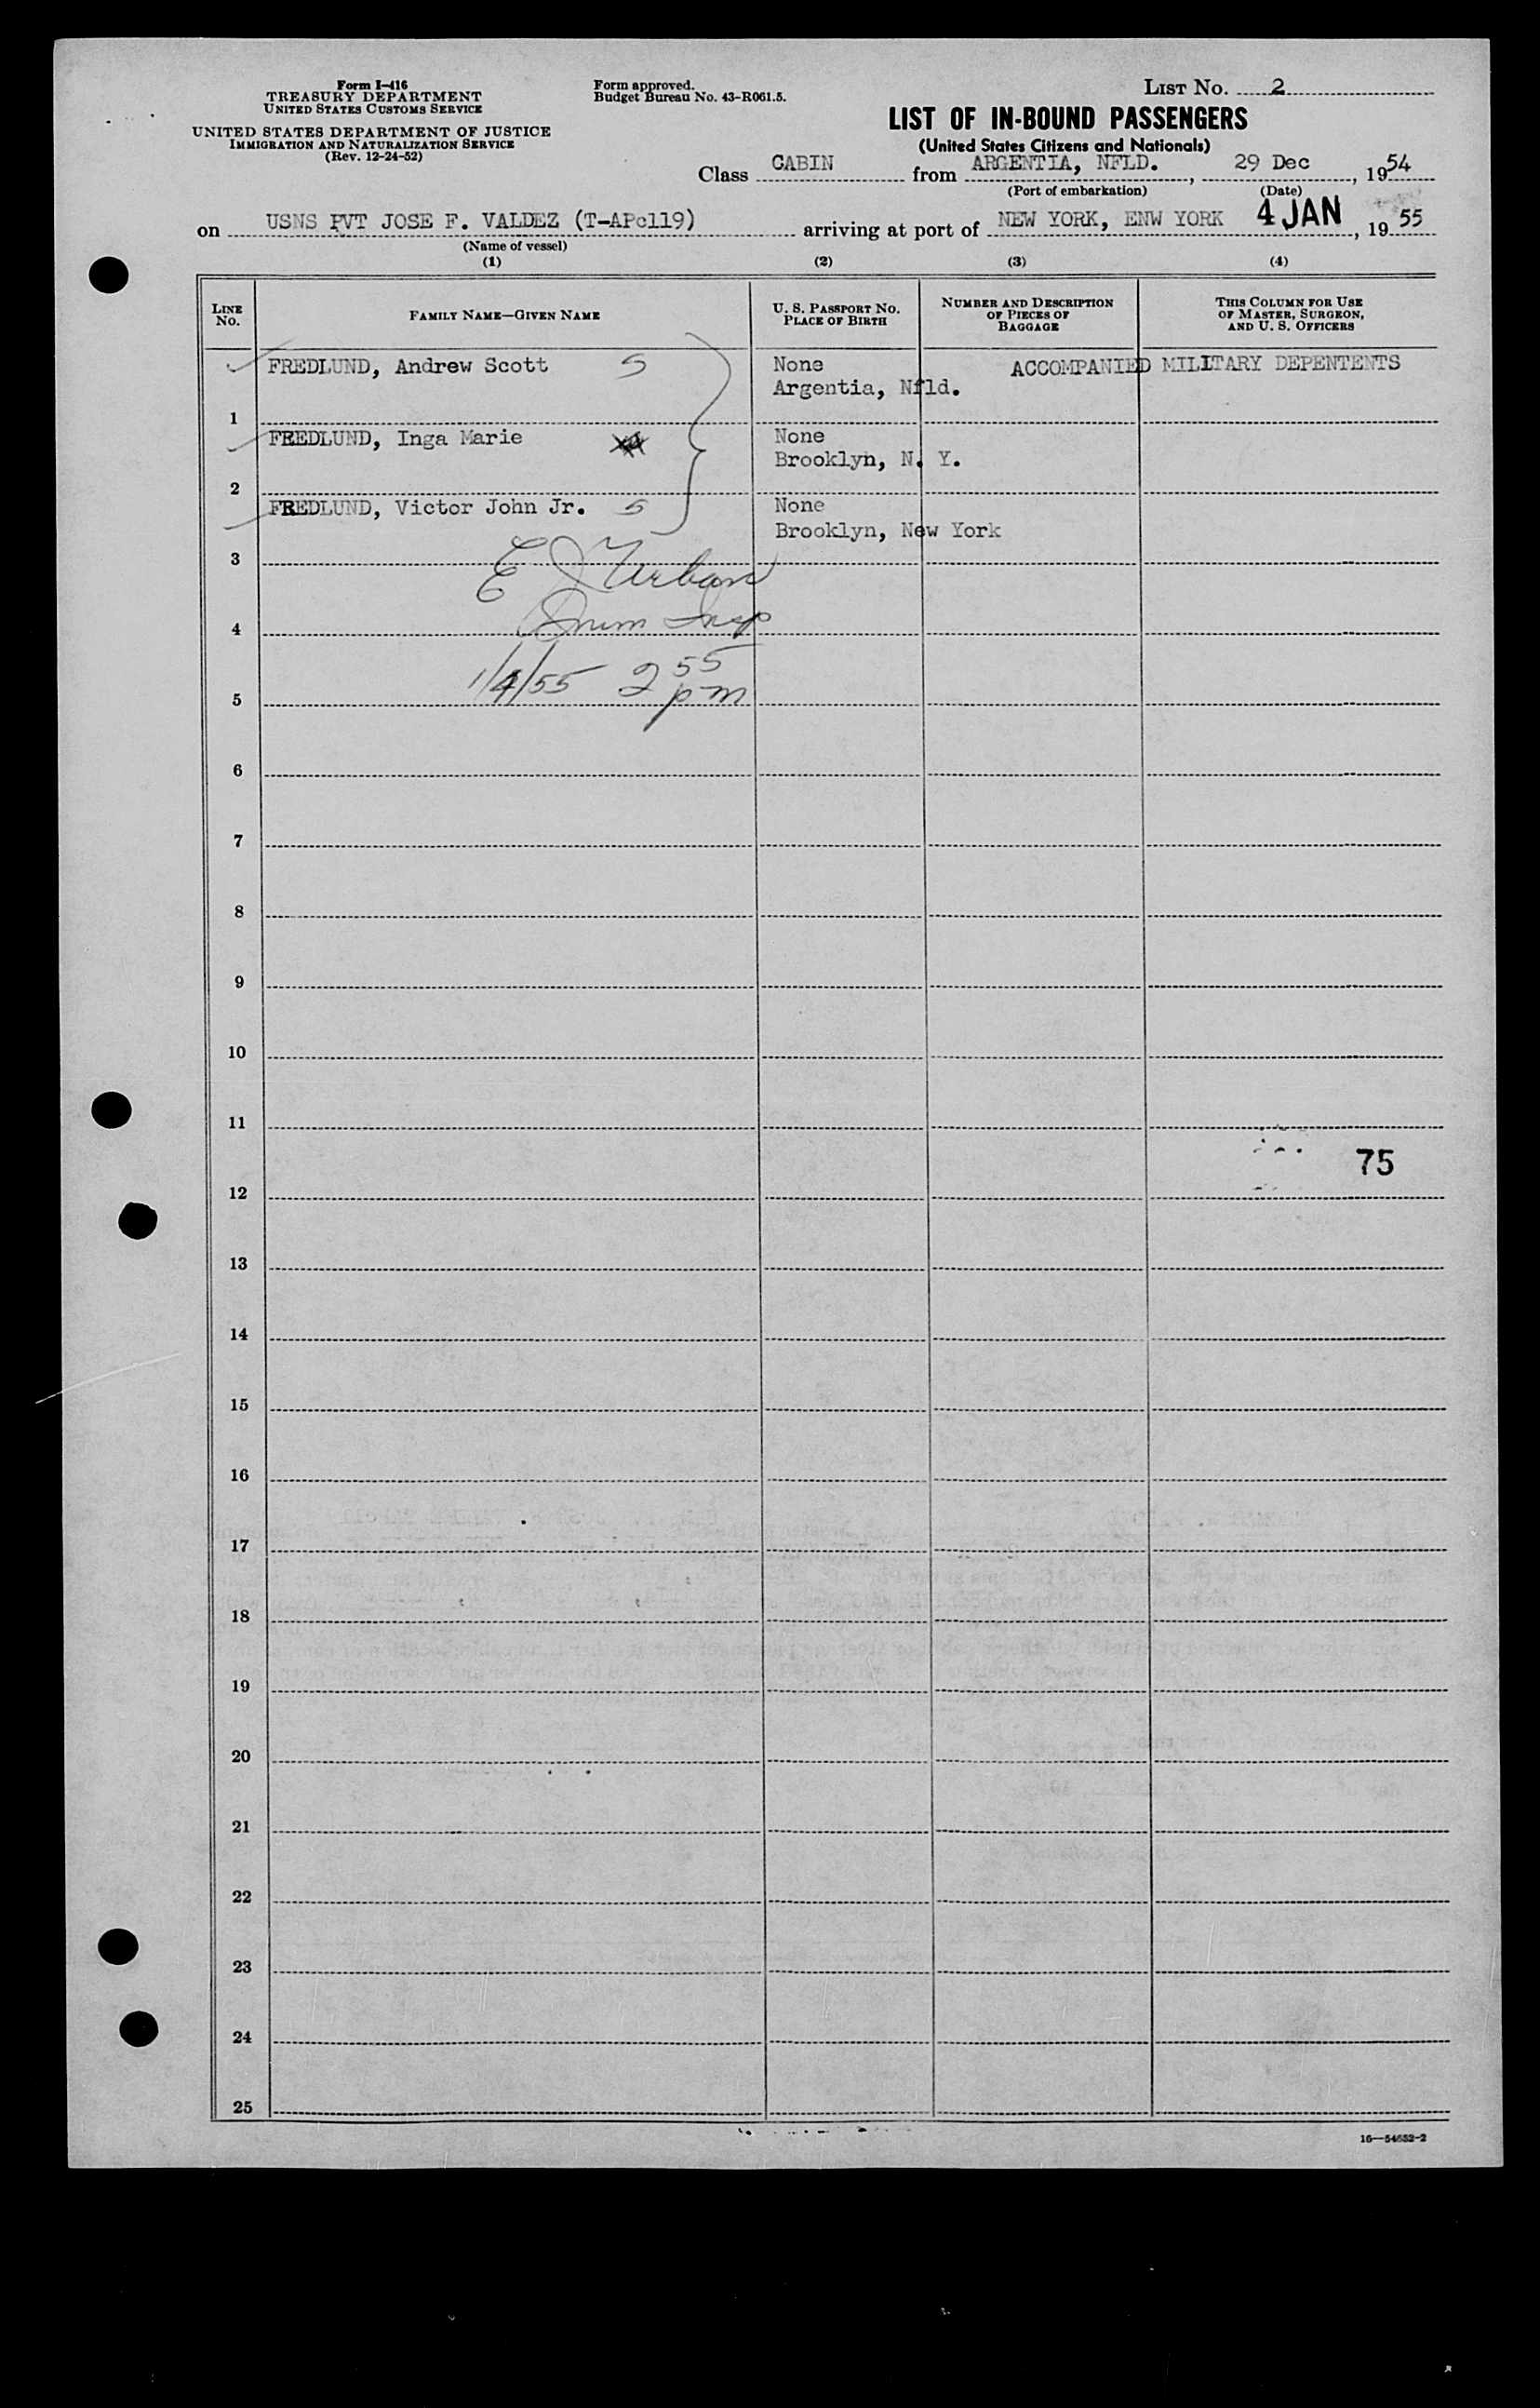 Form I-416
TREASURY DEPARTMENT
UNITED STATES CUSTOMS SERVICE
UNITED STATES DEPARTMENT OF JUSTICE
IMMIGRATION AND NATURALIZATION SERVICE
(Rev. 12-24-52)
Form approved.
Budget Bureau No. 43-R061.5.
LIST No. 2
LIST OF IN-BOUND PASSENGERS
(United States Citizens and Nationals)
Class CABIN from ARGENTIA, NFLD., 29 Dec, 1954
(Port of embarkation) (Date)
on USNS PVT JOSE F. VALDEZ (T-APc119) arriving at port of NEW YORK, ENW YORK 4 JAN, 1955
(Name of vessel)
(1) (2) (3) (4)
LINE No. FAMILY NAME—GIVEN NAME U. S. PASSPORT No. PLACE OF BIRTH NUMBER AND DESCRIPTION OF PIECES OF BAGGAGE THIS COLUMN FOR USE OF MASTER, SURGEON, AND U. S. OFFICERS
FREDLUND, Andrew Scott 5 None ACCOMPANIED MILITARY DEPENTENTS
Argentia, Nfld.
1
FREDLUND, Inga Marie None
Brooklyn, N. Y.
2
FREDLUND, Victor John Jr. 5 None
Brooklyn, New York
3
E J Urban
4
Imm Insp
1/4/55 2 55 pm
5
6
7
8
9
10
11
75
12
13
14
15
16
17
18
19
20
21
22
23
24
25
16—54652-2